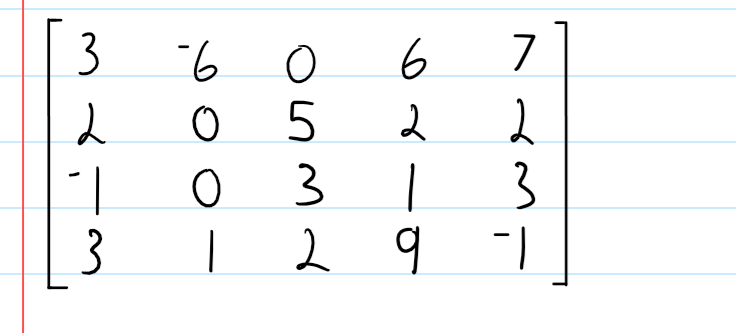 3 -6 0 6 7
2 0 5 2 2
-1 0 3 1 3
3 1 2 9 -1